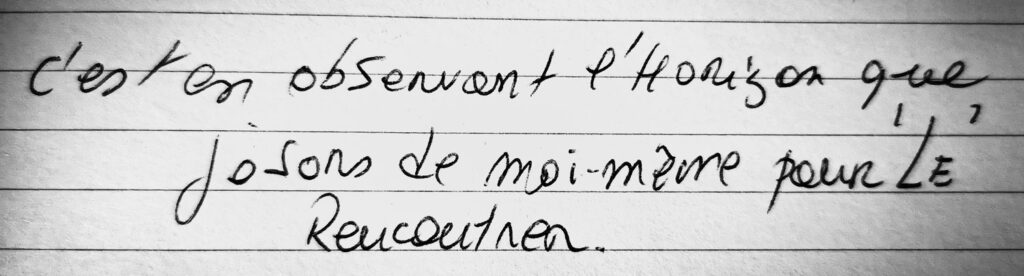 c'est en observant l'Horizon que
je sors de moi-même pour "LE"
Rencontrer.